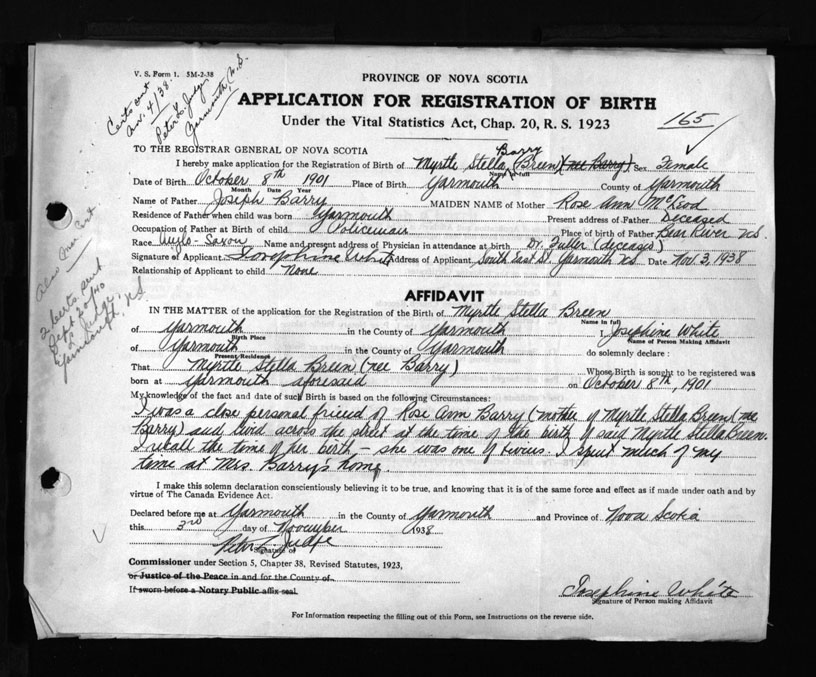 V. S. Form 1. 5M-2-38
Certs out
Nov. 4/38.
Peter L. Judge
Yarmouth, N.S.
PROVINCE OF NOVA SCOTIA
APPLICATION FOR REGISTRATION OF BIRTH
Under the Vital Statistics Act, Chap. 20, R. S. 1923
165
TO THE REGISTRAR GENERAL OF NOVA SCOTIA
Barry
I hereby make application for the Registration of Birth of Myrtle Stella (Breen) (nee Barry) Sex Female
Name in full
Date of Birth October 8th 1901 Place of Birth Yarmouth County of Yarmouth
Month Date Year
Name of Father Joseph Barry MAIDEN NAME of Mother Rose Ann McLeod
Residence of Father when child was born Yarmouth Present address of Father Deceased
Occupation of Father at Birth of child Policeman Place of birth of Father Bear River N.S.
Race Anglo-Saxon Name and present address of Physician in attendance at birth Dr. Fuller (deceased)
Signature of Applicant Josephine White Address of Applicant South East St. Yarmouth N.S. Date Nov 3, 1938
Relationship of Applicant to child None
2 certs sent
Sept 20/40
Yarmouth, N.S.
AFFIDAVIT
IN THE MATTER of the application for the Registration of the Birth of Myrtle Stella Breen
Name in full
of Yarmouth in the County of Yarmouth I, Josephine White
Birth Place Name of Person Making Affidavit
of Yarmouth in the County of Yarmouth do solemnly declare :
Present Residence
That Myrtle Stella Breen (nee Barry) Whose Birth is sought to be registered was
born at Yarmouth aforesaid on October 8th, 1901
My knowledge of the fact and date of such Birth is based on the following Circumstances:
I was a close personal friend of Rose Ann Barry (mother of Myrtle Stella Breen (nee
Barry) and lived across the street at the time of the birth of said Myrtle Stella Breen.
I recall the time of her birth - she was one of twins. I spent much of my
time at Mrs. Barry's home.
I make this solemn declaration conscientiously believing it to be true, and knowing that it is of the same force and effect as if made under oath and by
virtue of The Canada Evidence Act.
Declared before me at Yarmouth in the County of Yarmouth and Province of Nova Scotia
this 3rd day of November 1938
Peter L. Judge
Signature of
Commissioner under Section 5, Chapter 38, Revised Statutes, 1923,
or Justice of the Peace in and for the County of
If sworn before a Notary Public affix seal
Josephine White
Signature of Person making Affidavit
For Information respecting the filling out of this Form, see Instructions on the reverse side.